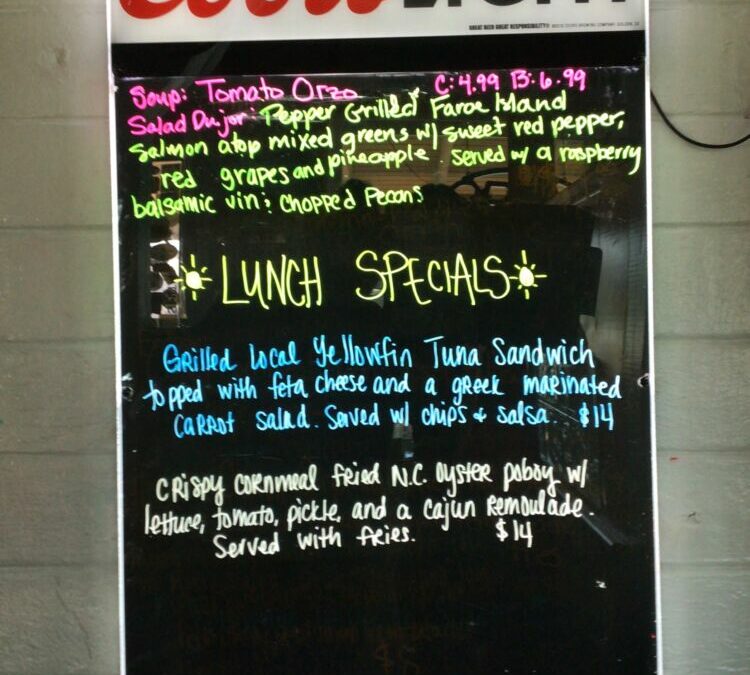 Coors LIGHT
GREAT BEER GREAT RESPONSIBILITY®
Soup: Tomato Orzo C: 4.99 B: 6.99
Salad Du jor: Pepper Grilled Faroe Island
Salmon atop mixed greens w/ sweet red pepper,
red grapes and pineapple. Served w/ a raspberry
balsamic vin; chopped Pecans
LUNCH SPECIALS
Grilled Local Yellowfin Tuna Sandwich
topped with feta cheese and a greek marinated
carrot salad. Served w/ chips & salsa. $14
Crispy cornmeal fried N.C. Oyster poboy w/
lettuce, tomato, pickle, and a cajun remoulade.
Served with fries. $14